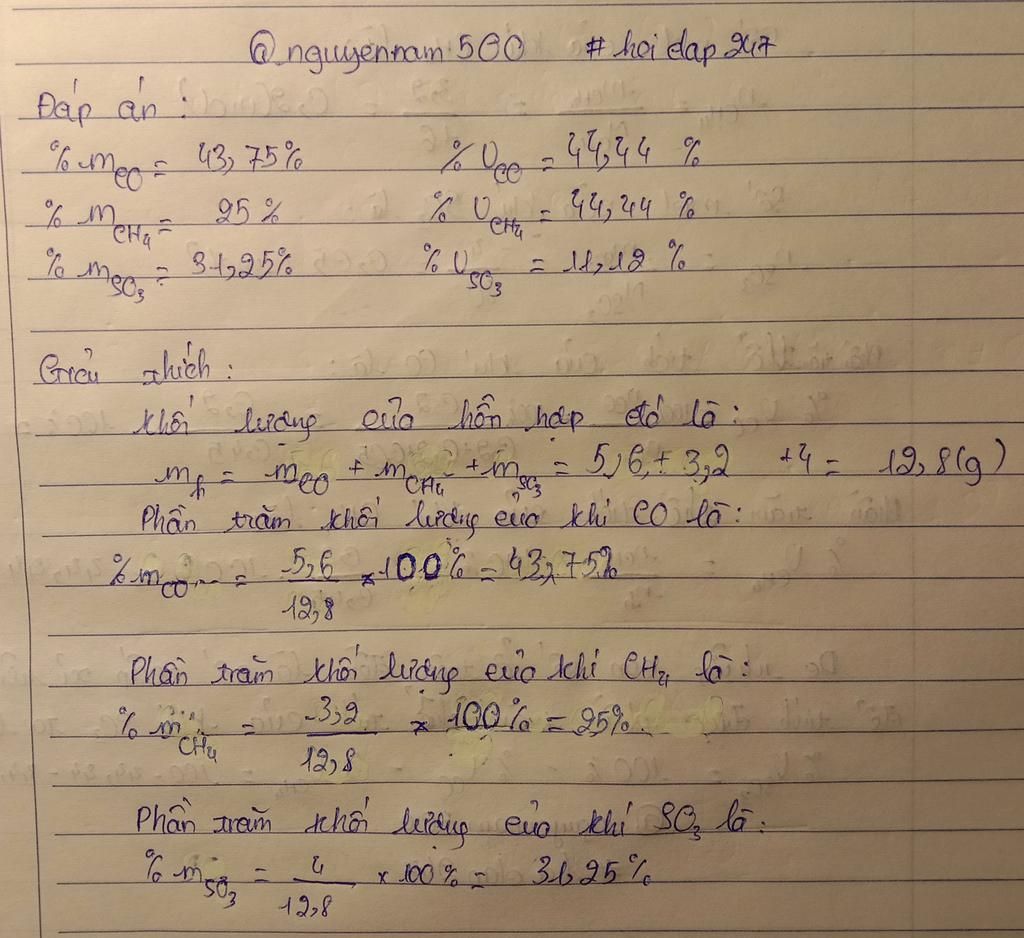 @nguyennam500 #hoidap247
Đáp án :
%mCO = 43,75% %VCO = 44,44 %
%mCH4 = 25 % %VCH4 = 44,44 %
%mSO3 = 31,25% %VSO3 = 11,12 %
Giải thích :
Khối lượng của hỗn hợp đó là :
m = mCO + mCH4 + mSO3 = 5,6 + 3,2 +4 = 12,8(g)
Phần trăm khối lượng của khí CO là :
%mCO = 5,6/12,8 x 100% = 43,75%
Phần trăm khối lượng của khí CH4 là :
%mCH4 = 3,2/12,8 x 100% = 25%
Phần trăm khối lượng của khí SO3 là :
%mSO3 = 4/12,8 x 100% = 31,25%